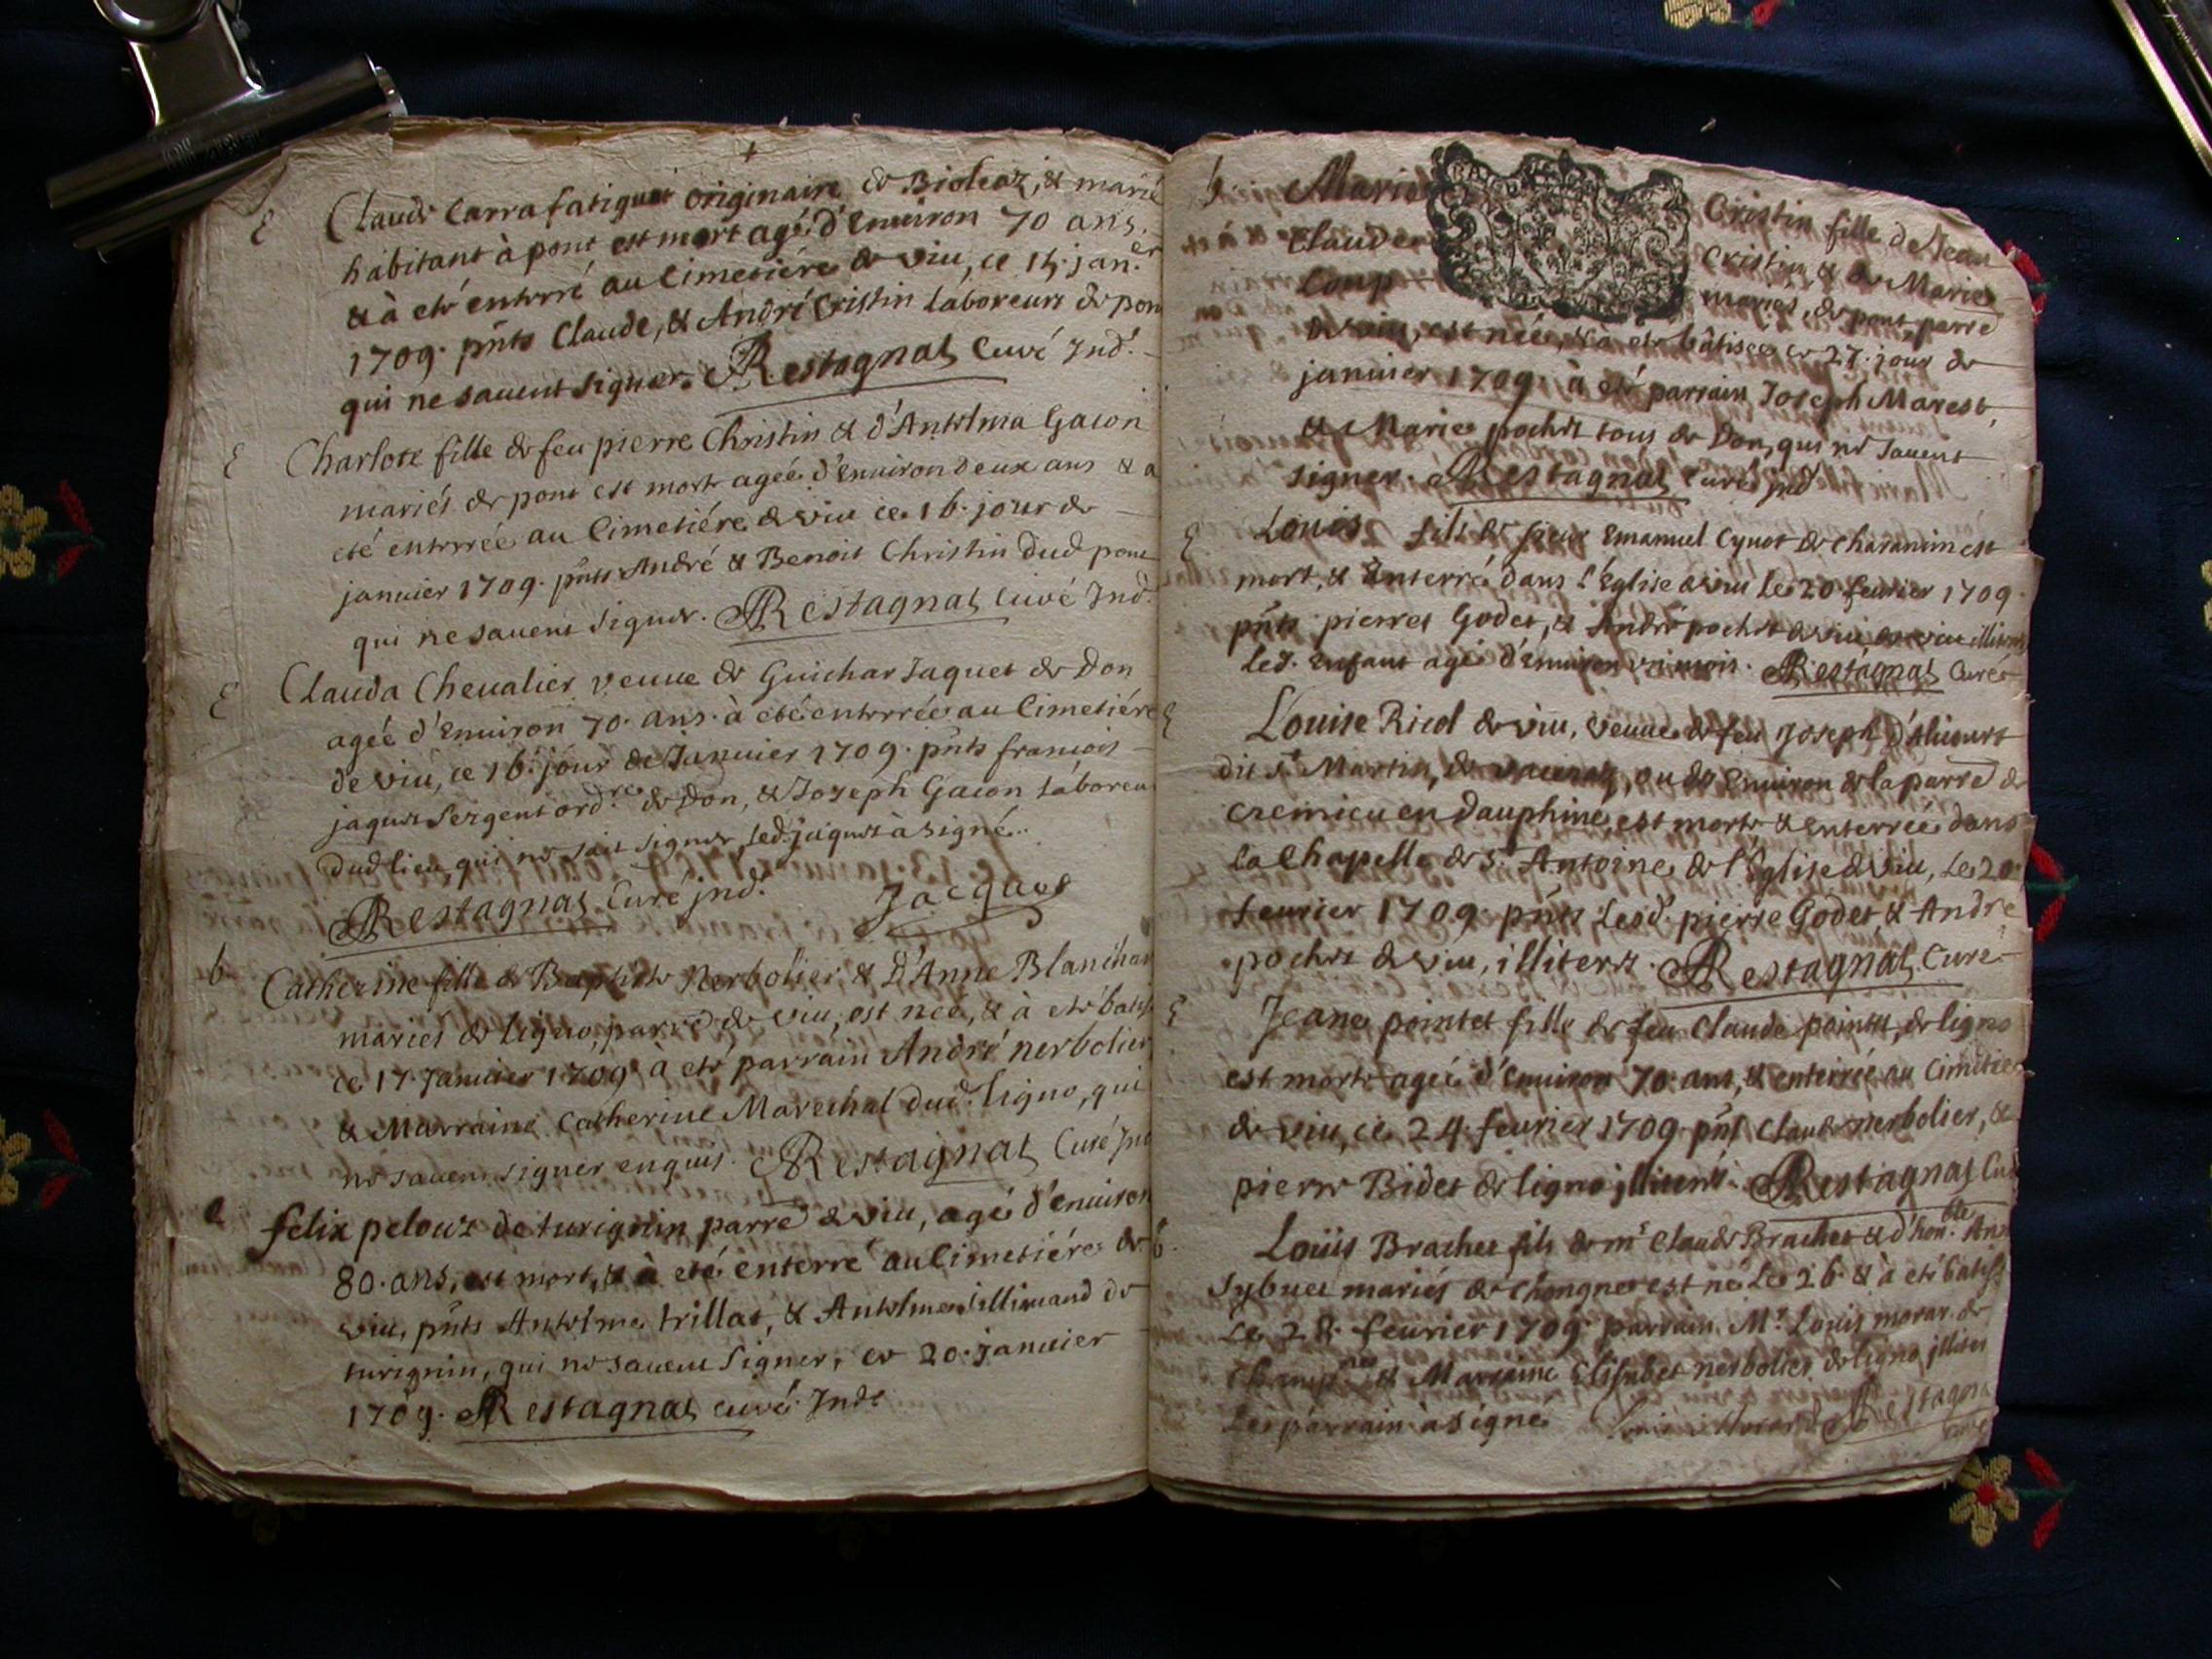 E Claude Carra fatiguet originaire de Bioleaz, & marié
habitant à pont, est mort agé d'Enuiron 70 ans.
& à eté enterré au Cimetiére de viu, ce 15. jan.er
1709. pnts Claude, & André Cristin laboreurs de pont
qui ne sauent signer. Restagnat Curé Ind.
E Charlote fille de feu pierre Christin & d'Antelma Gacon
mariés de pont est morte ageé d'enuiron deux ans & a
eté enterrée au Cimetiére de viu ce 16. jour de
januier 1709. pnts André & Benoit Christin dud pont
qui ne sauent signer. Restagnat Curé Ind.
E Clauda Cheualier veuue de Guichar Jaquet de Don
ageé d'Enuiron 70. ans. à eté enterrée au Cimetiére
de viu, ce 16. jour de Januier 1709. pnts francois
jaquet sergent ord.re de Don, & Joseph Gacon laboreur
dud lieu, qui ne sait signer, led jaquet à signé.
Restagnat Curé jnd. Jacques
b Catherine fille de Baptiste Nerbolier, & D'Anne Blanchar
mariés de ligno, parre de viu, est neé, & à eté batisé
ce 17. Januier 1709. a eté parrain André nerbolier
& Marraine Catherine Marechal dud. ligno, qui
ne sauent signer enquis. Restagnat Curé Ind
e felix pelouz de turignin parre de viu, agé d'enuiron
80. ans, est mort, & à eté enterré au Cimetiére de
viu, pnts Antelme trillat, & Antelme de
turignin, qui ne sauent signer, ce 20. januier
1709. Restagnat curé Inde
b Marie Cristin fille de Jean
Claude Cristin, & de Marie
Loup mariés, de pont parre
de viu, est neé, & à eté bâtiseé ce 27. jour de
januier 1709. à eté parrain Joseph Marest,
& Marie pochet tous de Don, qui ne sauent
signer. Restagnat Curé jnd
E Louis fils de sieur Emanuel Cynot de Charancin est
mort, & Enterré dans l'Église de viu le 20. feurier 1709.
pnts pierre Godet, & André pochet de viu
led. Enfant agé d'Enuiron mois. Restagnat Curé
E Louise Ricol de viu, veuue de feu Joseph
dit st Martin, de ou des Enuiron de la parre de
cremieu en dauphiné, est morte & Enterreé dans
la Chapelle de St Antoine de l'Eglise de viu, le 20.
feurier 1709. pnts lesd. pierre Godet, & André
pochet de viu, illiterés. Restagnat Curé
E Jeane pointet fille de feu Claude pointet, de ligno
est morte ageé d'Enuiron 70. ans, & enterreé au Cimetiére
de viu, ce 24. feurier 1709. pnts Claude nerbolier, &
pierre Bidet de ligno jlliterés. Restagnat Curé
b. Loüis Brachet fils de mr Claude Brachet & d'hon.ble Anne
Sybuet mariés de Chongnes est né le 26. & à eté batisé
le 28. feurier 1709. parrain Mr. Louis morar de
& Marraine Elisabet nerbolier, de ligno jlliter
le parrain à signé Restagnat
Curé